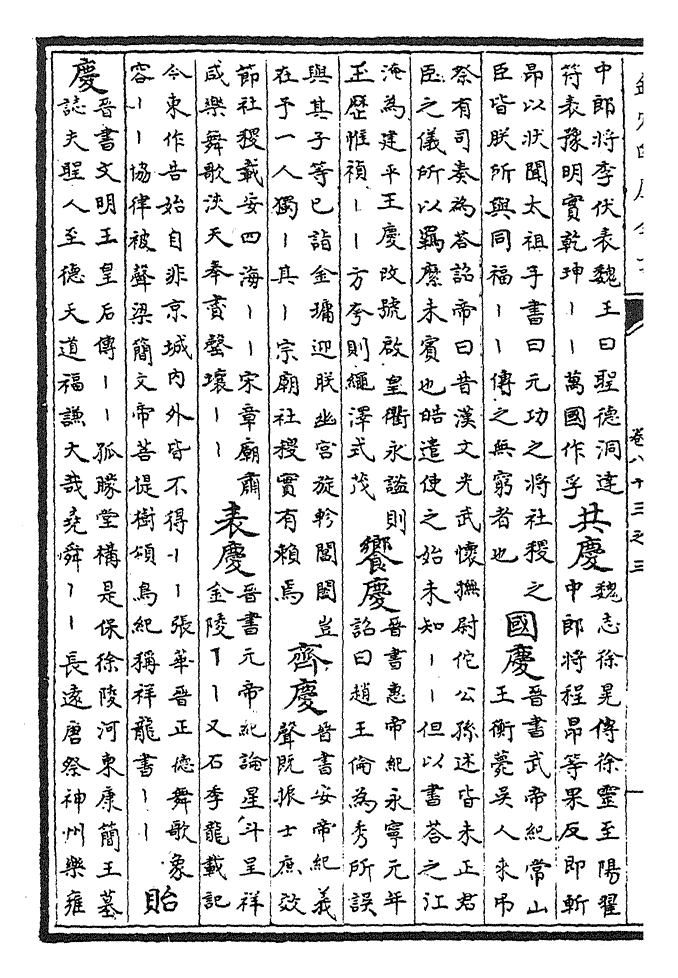 卷八十三之三
中郎將李伏表魏王曰聖德洞達
符表豫明實乾坤丨丨萬國作孚
共慶
魏志徐晃傳徐靈至陽翟
中郎將程昂等果反即斬
昂以狀聞太祖手書曰元功之將社稷之
臣皆朕所與同福丨丨傳之無窮者也
國慶
晉書武帝紀常山
王衡薨吳人來弔
祭有司奏為荅詔帝曰昔漢文光武懷撫尉佗公孫述皆未正君
臣之儀所以羈縻未賓也皓遣使之始未知丨丨但以書荅之江
淹為建平王慶改號啟皇衢永謐則
王歷惟禎丨丨方夸則繩澤式茂
饗慶
晉書惠帝紀永寧元年
詔曰趙王倫為秀所誤
與其子等已詣金墉迎朕幽宮旋軫閶闔豈
在予一人獨丨其丨宗廟社稷實有賴焉
齊慶
晉書安帝紀義
聲既振士庶效
節社稷載安四海丨丨宋章廟肅
咸樂舞歌浹天奉賚罄壤丨丨
表慶
晉書元帝紀論星斗呈祥
金陵丨丨又石季龍載記
今東作告始自非京城內外皆不得丨丨張華晉正德舞歌象
容丨丨協律被聲梁簡文帝菩提樹頌鳥紀稱祥龍書丨丨
貽
慶
晉書文明王皇后傳丨丨孤矇堂構是保徐陵河東康簡王墓
誌夫聖人至德天道福謙大哉堯舜丨丨長遠唐祭神州樂雍